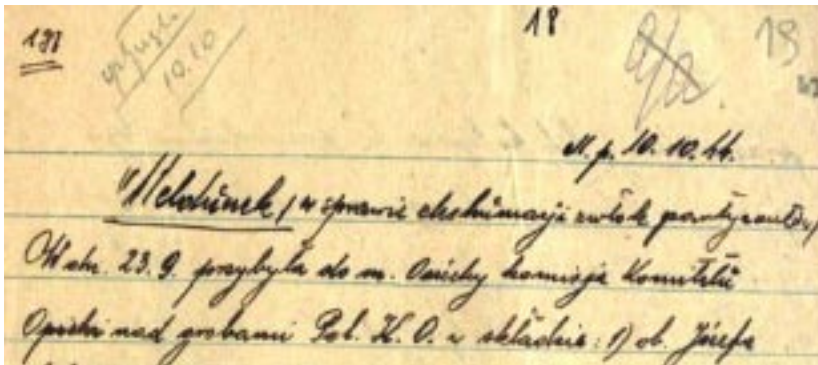 191
10.10
18
a/a
18
M. p. 10. 10. 44.
Meldunek / w sprawie ekshumacji zwłok partyzantów /
W dn. 23. 9. przybyła do m. Osuchy komisja Komitetu
Opieki nad grobami Pol. K. O. w składzie: 1) ob. Józefa